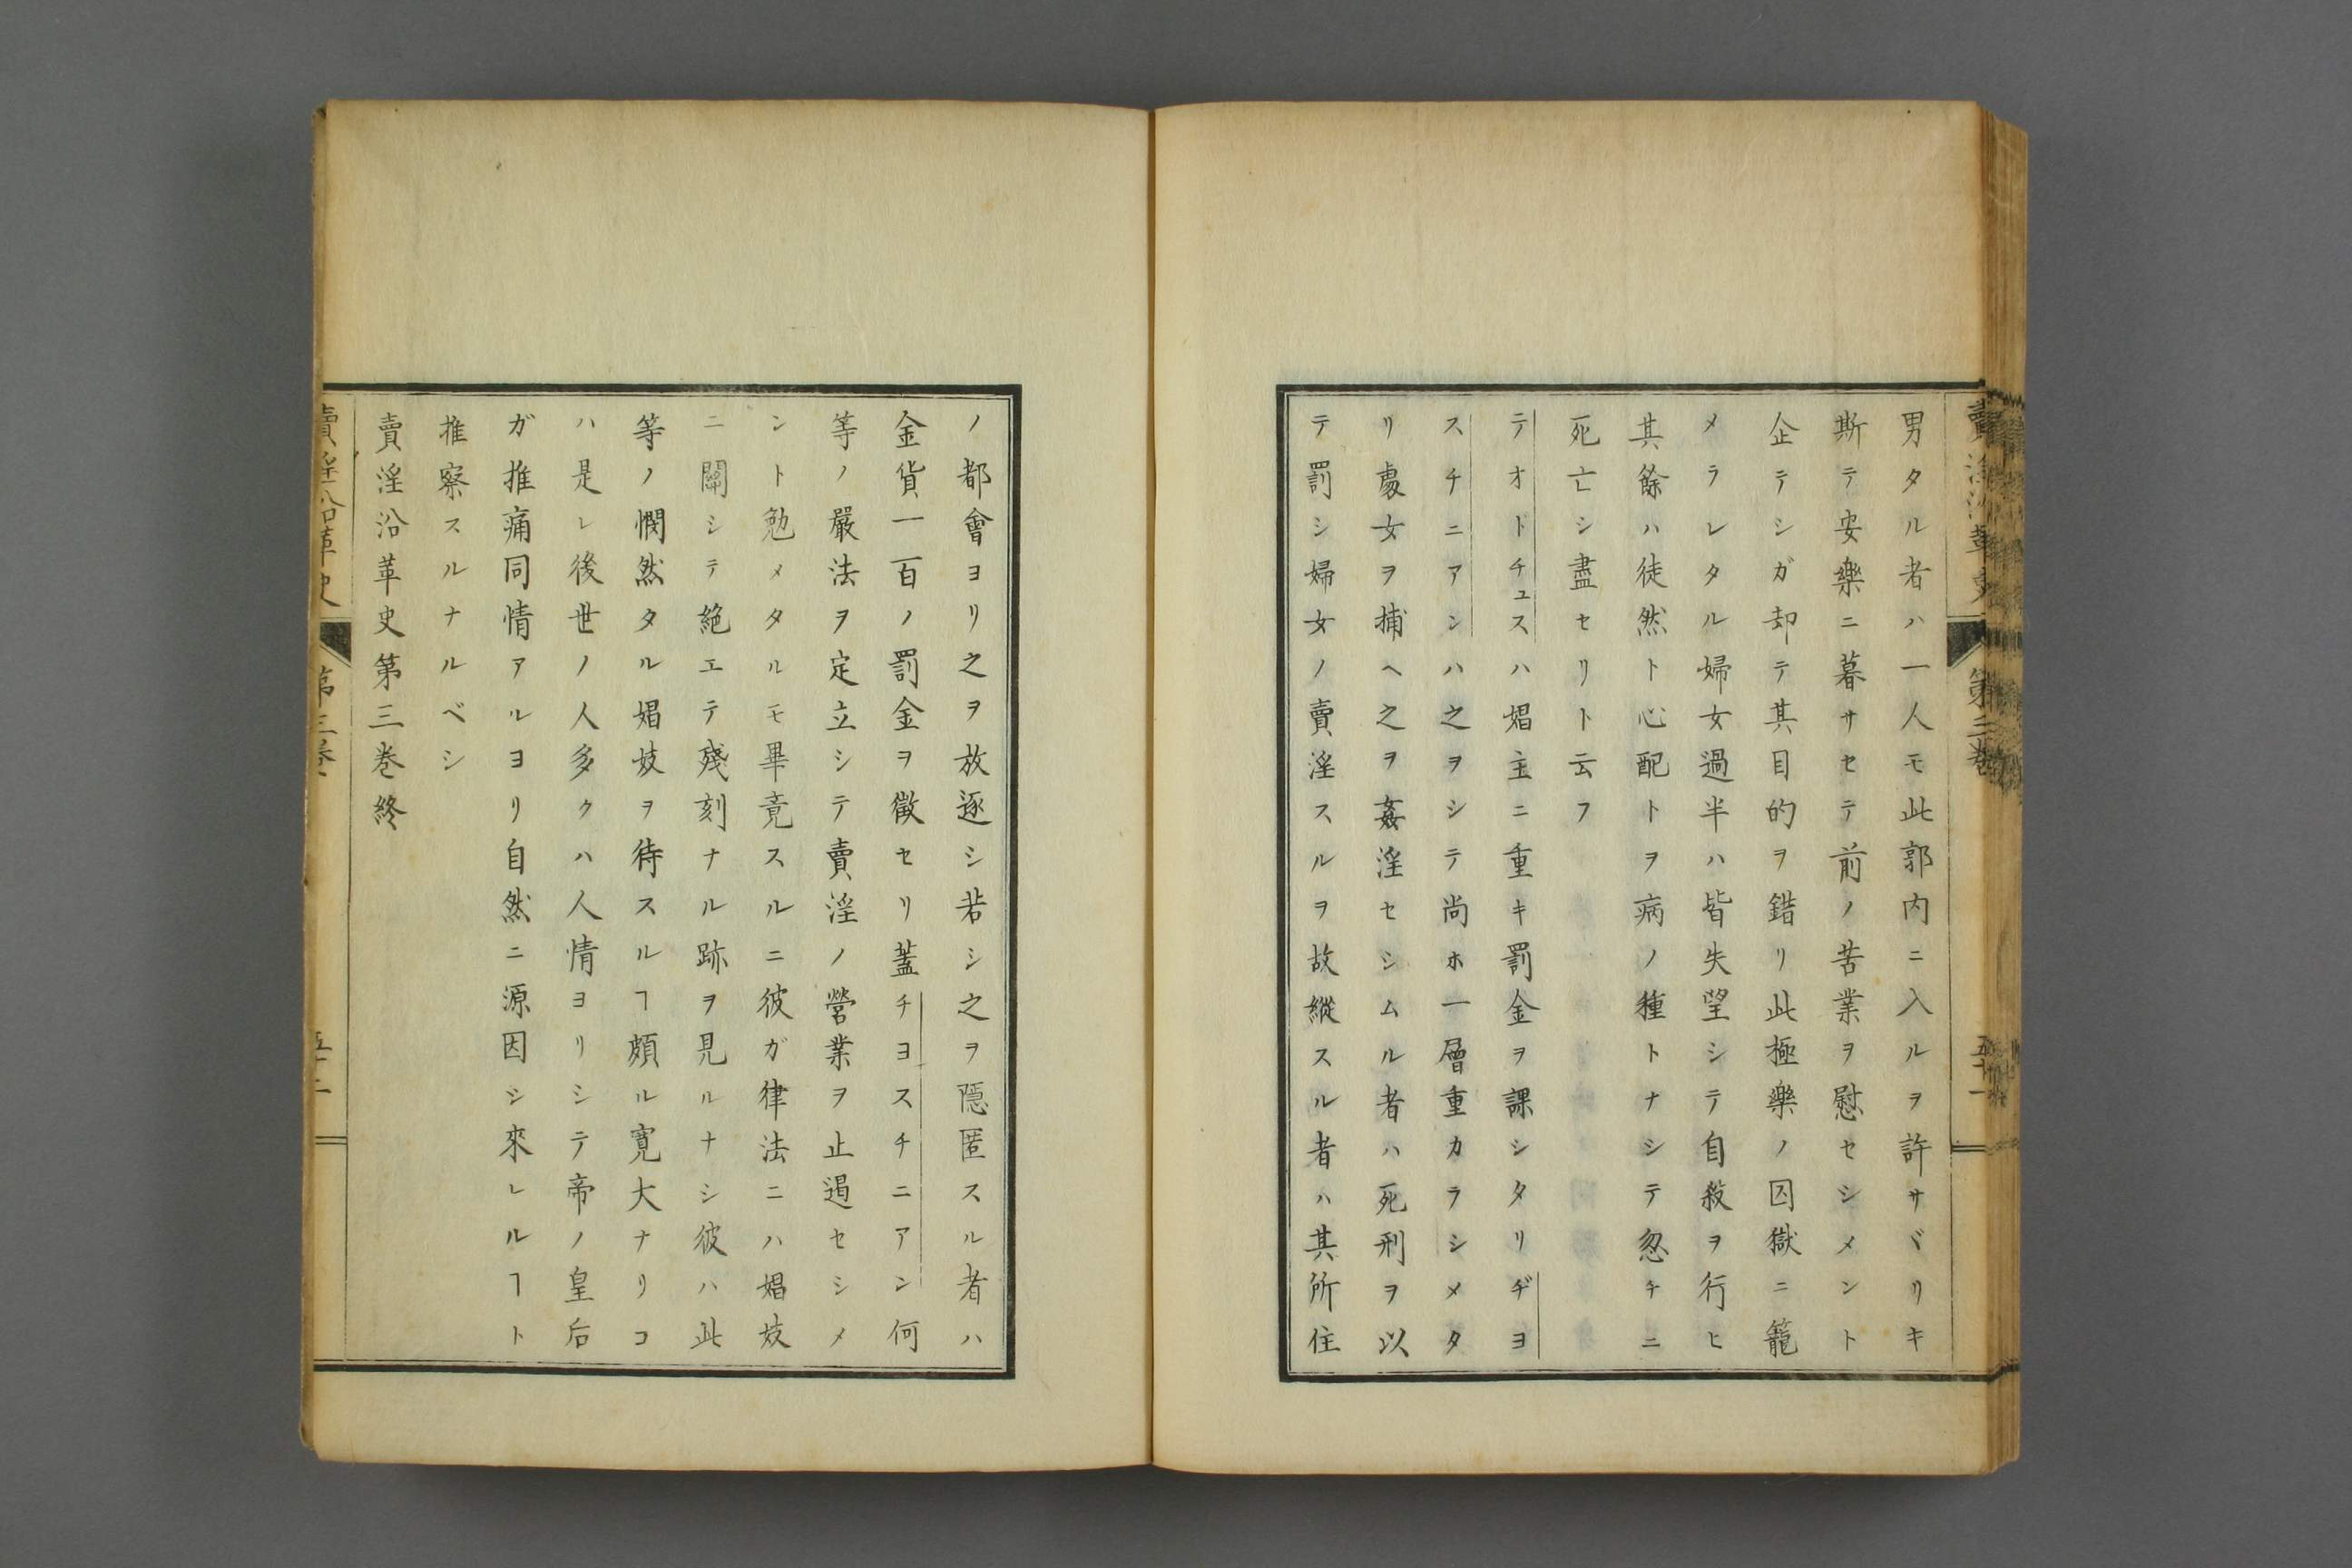 男タル者ハ一人モ此郭内ニ入ルヲ許サヾリキ
斯テ安樂ニ暮サセテ前ノ苦業ヲ慰セシメント
企テシガ却テ其目的ヲ錯リ此極樂ノ囚獄ニ籠
メラレタル婦女過半ハ皆失望シテ自殺ヲ行ヒ
其餘ハ徒然ト心配トヲ病ノ種トナシテ忽チニ
死亡シ盡セリト云フ
テオドチュスハ娼主ニ重キ罰金ヲ課シタリヂヨ
スチニアンハ之ヲシテ尚ホ一層重カラシメタ
リ處女ヲ捕ヘ之ヲ姦淫セシムル者ハ死刑ヲ以
テ罰シ婦女ノ賣淫スルヲ故縱スル者ハ其所住
賣淫沿革史
第三卷
五十一
ノ都會ヨリ之ヲ放逐シ若シ之ヲ隱匿スル者ハ
金貨一百ノ罰金ヲ徴セリ蓋チヨスチニアン何
等ノ嚴法ヲ定立シテ賣淫ノ營業ヲ止遏セシメ
ント勉メタルモ畢竟スルニ彼ガ律法ニハ娼妓
ニ關シテ絶エテ殘刻ナル跡ヲ見ルナシ彼ハ此
等ノ憫然タル娼妓ヲ待スルヿ頗ル寛大ナリコ
ハ是レ後世ノ人多クハ人情ヨリシテ帝ノ皇后
ガ推痛同情アルヨリ自然ニ源因シ來レルヿト
推察スルナルベシ
賣淫沿革史第三巻終
賣淫沿革史
第三卷